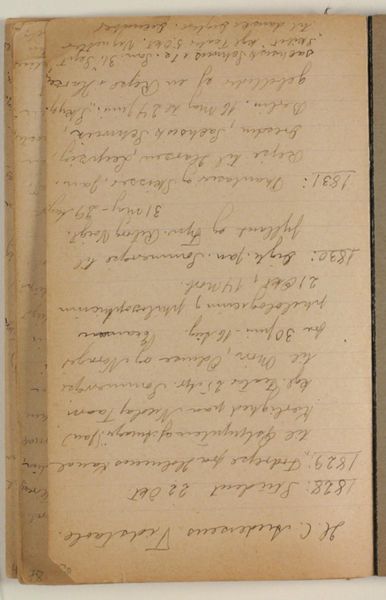 H. C. Andersens Tidstavle.
1828: Student 22 Okt
1829: Fodrejse fra Holmens Kanal
til Østpynten af Amager (Jan)
Kærlighed paa Nicolaj Taarn
kgl Teater 25 Apr. Sommerrejse
til Møn, Odense og
fra 30 Juni - 16 Aug. Examen
philologicum & philosophicum
21 Okt, 14 Nov.
1830: Digte. Jan Sommerrejse til
Jyllland og Fyn. Riborg Voigt.
31 Maj - 29 Aug
1831: Phantasier og Skizzer Jan.
Rejse til Harzen Leipzig,
Dresden, Sachsisk Schweiz,
Berlin. 16 Maj til 24 Juni. Skygge-
billeder af en Rejse i Harzen,
Sachsisk Schweiz etc. 31 Sept
"Skibet" kgl Teater 5 Okt
til danske Digtere. December